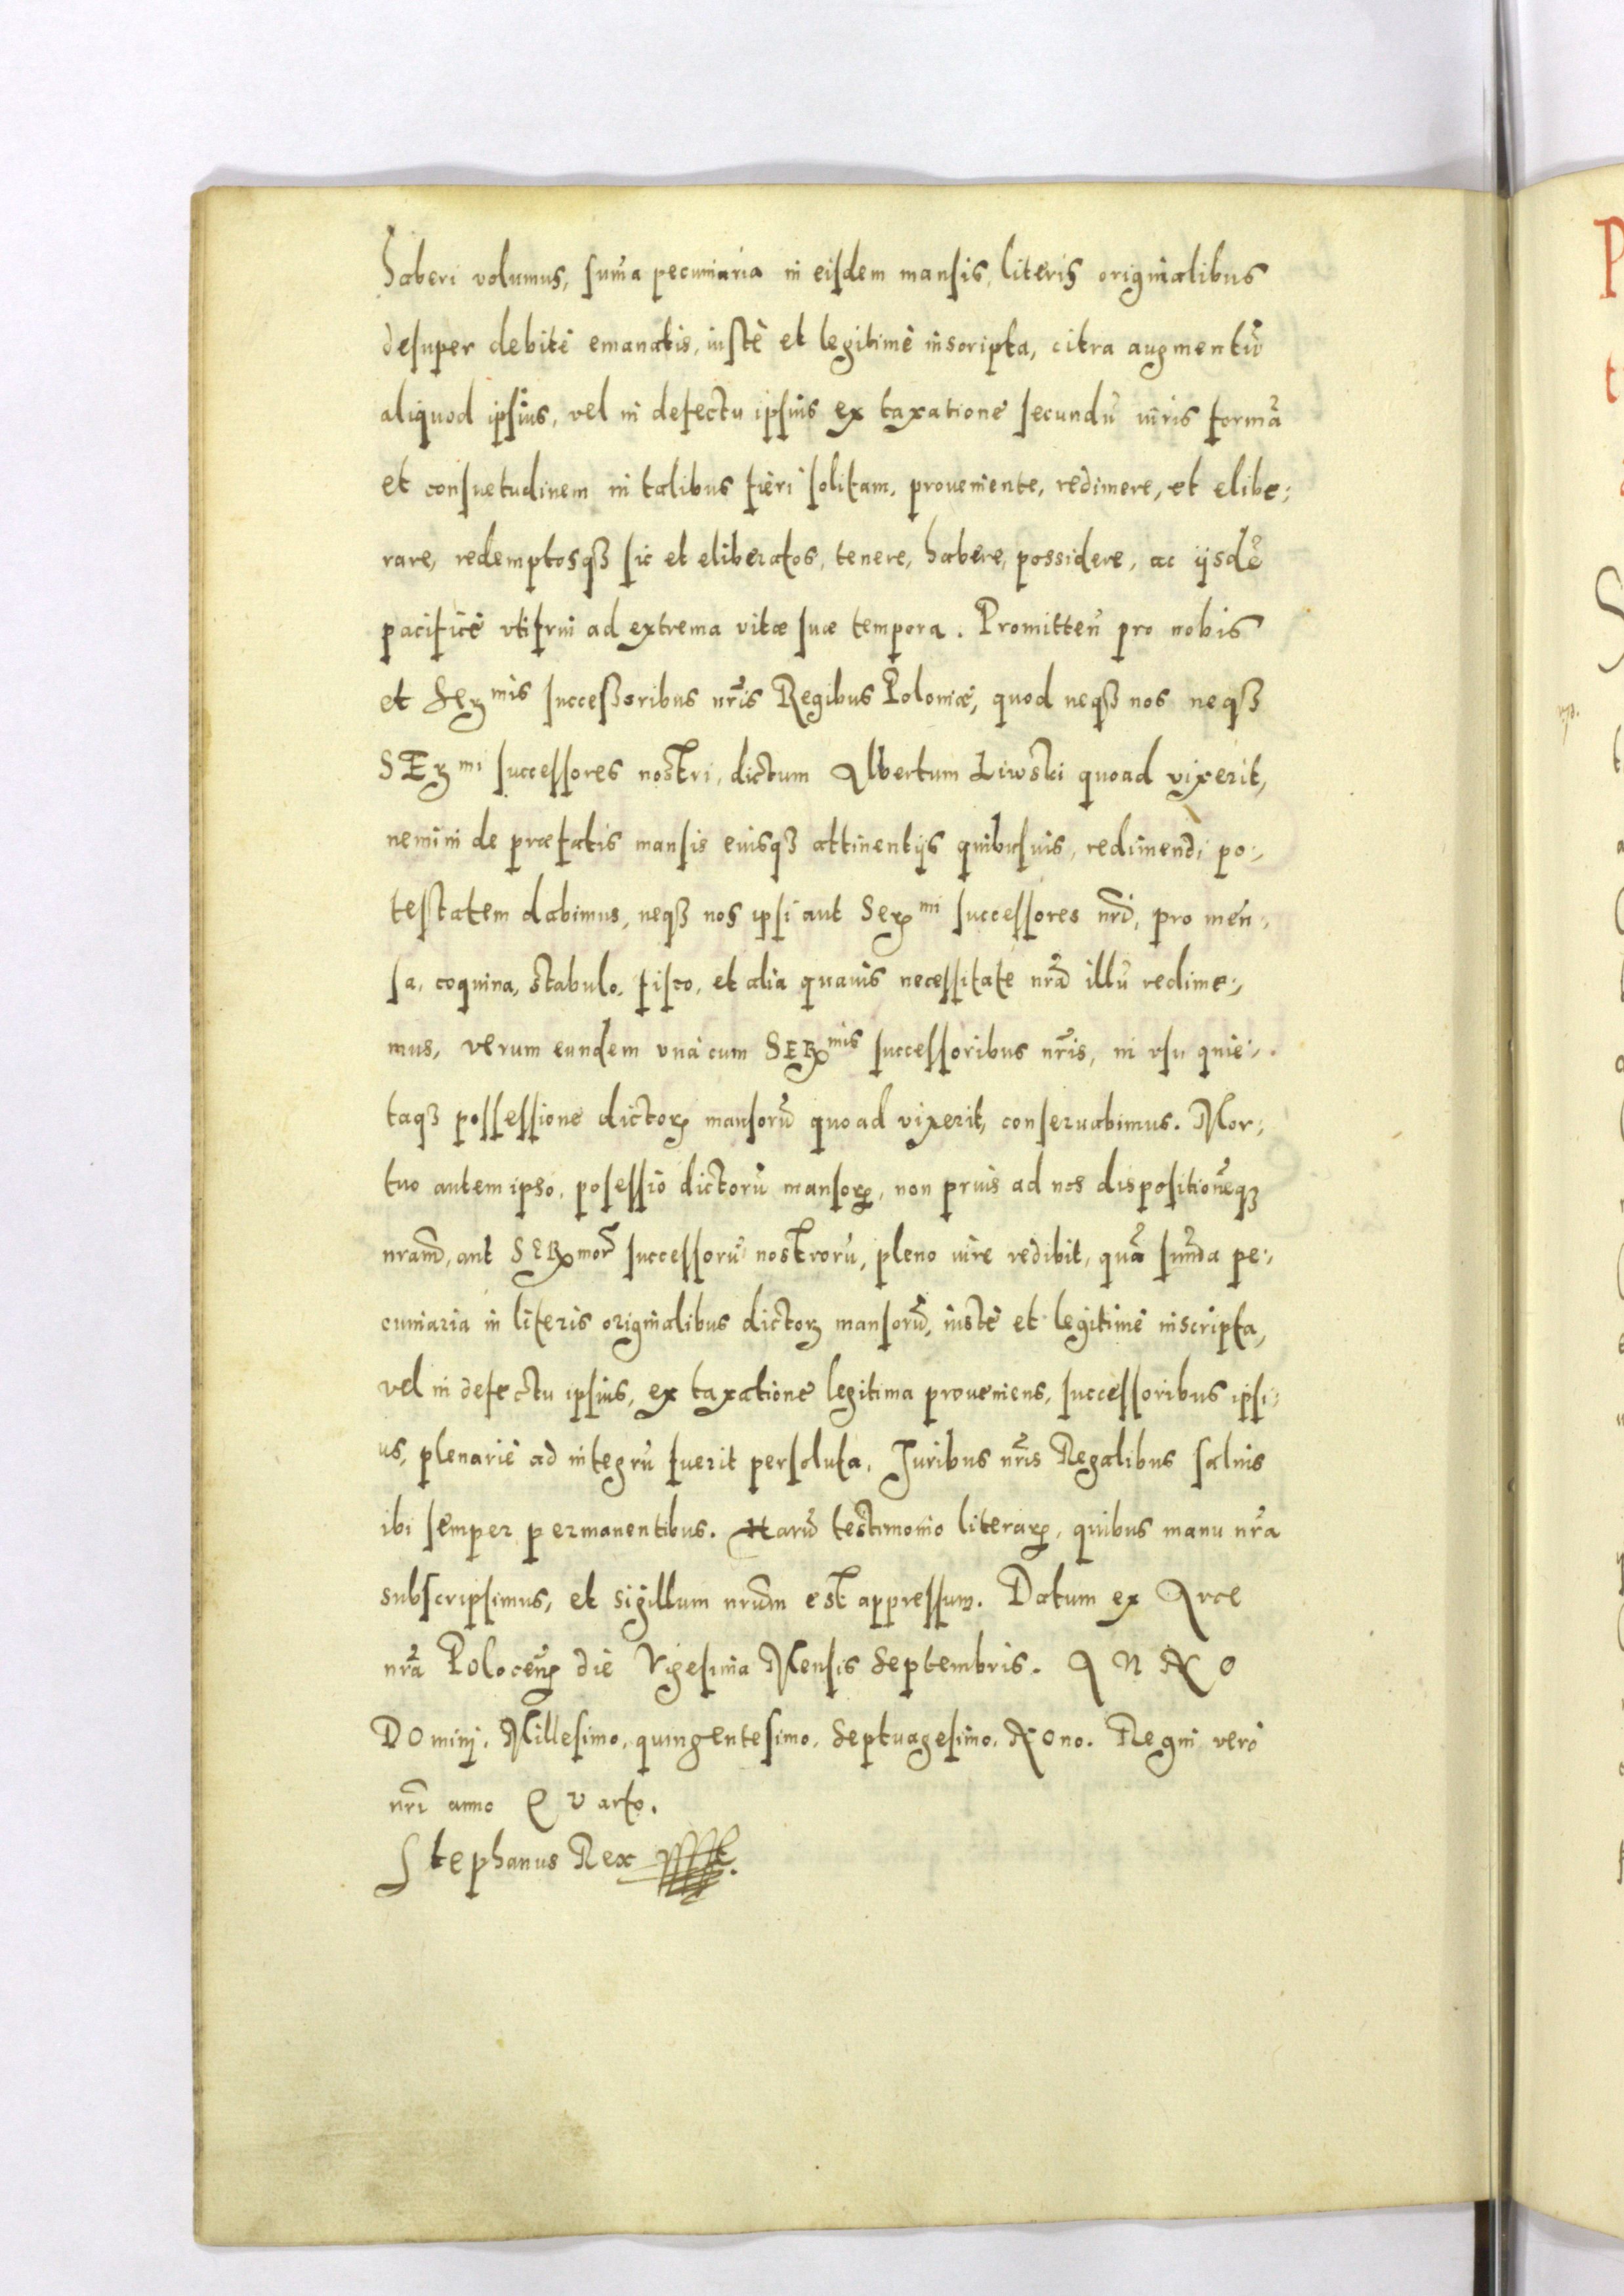 haberi volumus, sum̃a pecuniaria in eisdem mansis, literis originalibus
desuper debitè emanatis, iustè et legitimè inscripta, citra augmentũ
aliquod ipsius, vel in defectu ipsius ex taxatione secundũ iuris formã
et consuetudinem in talibus fieri solitam, proueniente, redimere, et elibe:
rare, redemptosqꝫ sic et eliberatos, tenere, habere, possidere, ac ijsdẽ
pacificè vtifrui ad extrema vitæ suæ tempora. Promitteñ pro nobis
et Serᵐⁱˢ successoribus nr̃is Regibus Poloniæ, quod neqꝫ nos neqꝫ
SErᵐⁱ successores nostri, dictum Albertum Liwski quoad vixerit,
nemini de præfatis mansis eiusqꝫ attinentijs quibusuis, redimendi po:
testatem dabimus, neqꝫ nos ipsi aut Serᵐⁱ successores nr̃i, pro men:
sa, coquina, stabulo, fisco, et alia quauis necessitate nr̃a illũ redime:
mus, verum eundem vnà cum SERᵐⁱˢ successoribus nr̃is, in vsu quie:
taqꝫ possessione dictoꝝ mansorũ quoad vixerit, conseruabimus. Mor:
tuo autem ipso, posessio dictorũ mansoꝝ, non prius ad nos dispositionẽqꝫ
nram̃, aut SERmor̃ successorũ nostrorũ, pleno iure redibit, quã sum̃a pe:
cuniaria in literis originalibus dictoꝝ mansorũ, iustè et legitimè inscripta,
vel in defectu ipsius, ex taxatione legitima proueniens, successoribus ipsi:
us, plenariè ad integrũ fuerit persoluta. Iuribus nr̃is Regalibus saluis
ibi semper permanentibus. Harũ testimonio literaꝝ, quibus manu nr̃a
subscripsimus, et sigillum nrũm est appressum. Datum ex Arce
nr̃a Poloceñ die Vigesima Mensis Septembris. A N N O
DOmini, Millesimo, quingentesimo, Septuagesimo, NOno. Regni verò
nri̇̃ anno QVarto.
Stephanus Rex